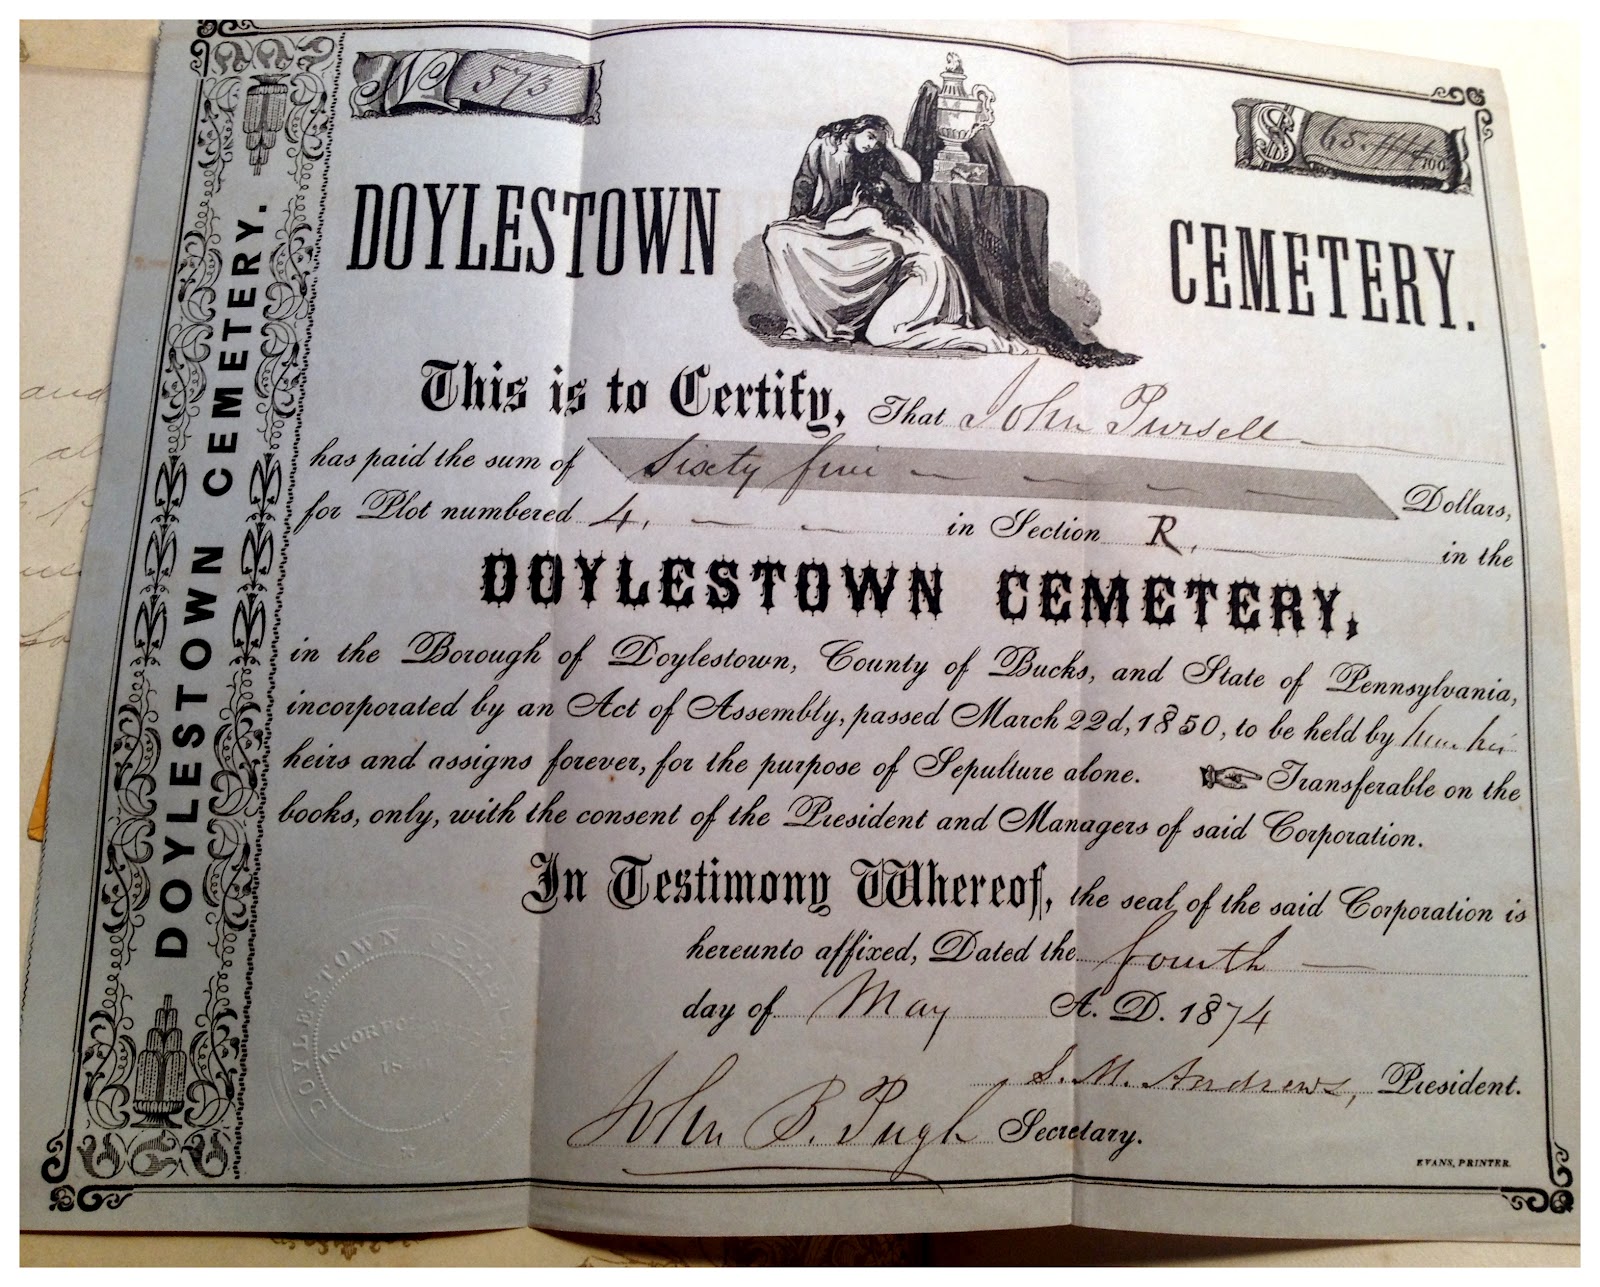 No 573
$ 65.
100
DOYLESTOWN CEMETERY.
This is to Certify, That John Pursell
has paid the sum of Sixty five Dollars,
for Plot numbered 4. in Section R. in the
DOYLESTOWN CEMETERY,
in the Borough of Doylestown, County of Bucks, and State of Pennsylvania,
incorporated by an Act of Assembly, passed March 22d, 1850, to be held by him his
heirs and assigns forever, for the purpose of Sepulture alone. Transferable on the
books, only, with the consent of the President and Managers of said Corporation.
In Testimony Whereof, the seal of the said Corporation is
hereunto affixed, Dated the fourth
day of May A. D. 1874
S. M. Andrews, President.
John B. Pugh Secretary.
EVANS, PRINTER.
DOYLESTOWN CEMETERY.
DOYLESTOWN